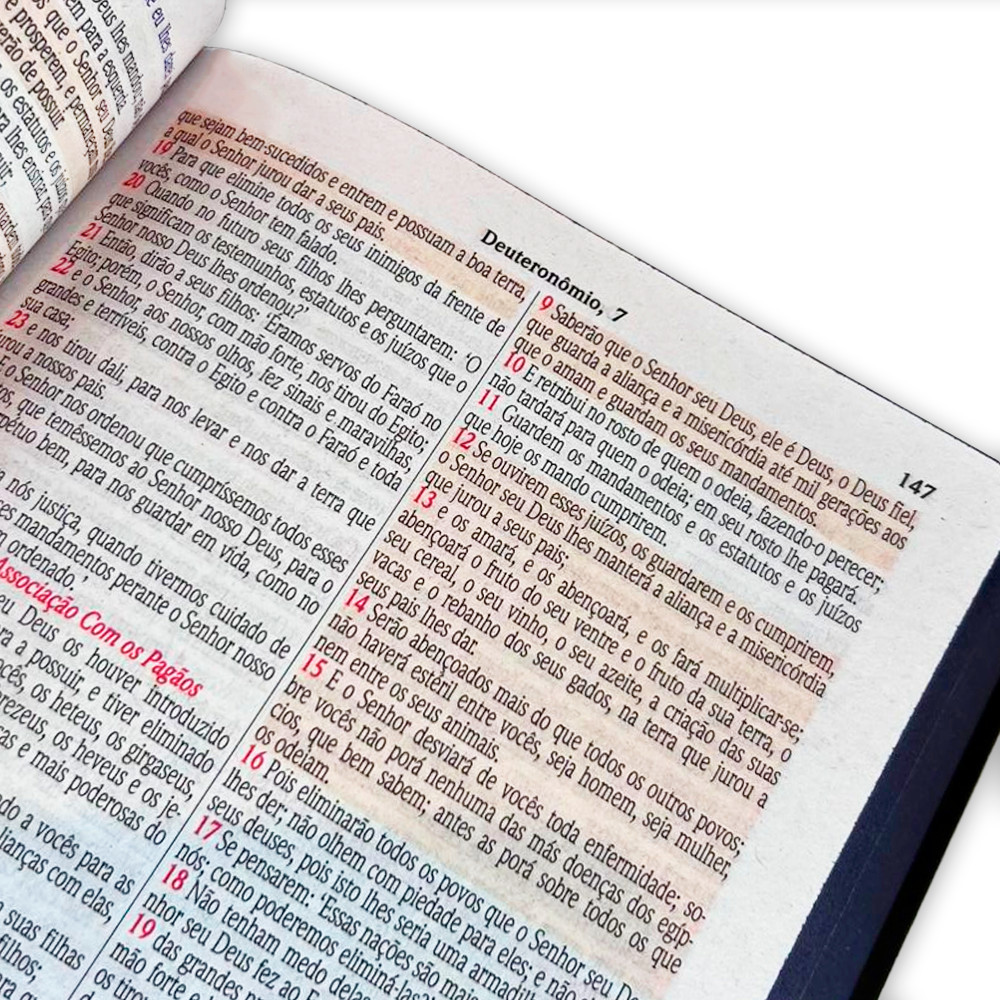 e eu lhes
eus lhes mandou
em para a esquerda
os que o Senhor seu Deus
e prosperem, e permaneçam
erão de possuir.
os estatutos e os juízos
ra lhes ensinar para
uir;
Deuteronômio, 7
147
que sejam bem-sucedidos e entrem e possuam a boa terra,
a qual o Senhor jurou dar a seus pais.
19 Para que elimine todos os seus inimigos da frente de
vocês, como o Senhor tem falado.
20 Quando no futuro seus filhos lhes perguntarem: 'O
que significam os testemunhos, estatutos e os juízos que o
Senhor nosso Deus lhes ordenou?'
21 Então, dirão a seus filhos: 'Éramos servos do Faraó no
Egito; porém, o Senhor, com mão forte, nos tirou do Egito;
22 e o Senhor, aos nossos olhos, fez sinais e maravilhas,
grandes e terríveis, contra o Egito e contra o Faraó e toda
sua casa;
23 e nos tirou dali, para nos levar e nos dar a terra que
urou a nossos pais.
E o Senhor nos ordenou que cumprissemos todos esses
os, que temêssemos ao Senhor nosso Deus, para o
pétuo bem, para nos guardar em vida, como no
nós justiça, quando tivermos cuidado de
es mandamentos perante o Senhor nosso
ordenado.'
Associação Com os Pagãos
eu Deus os houver introduzido
ra a possuir, e tiver eliminado
ocês, os heteus, os girgaseus,
rezeus, os heveus e os je-
as e mais poderosas do
do a vocês para as
lianças com elas,
suas filhas
filhos;
9 Saberão que o Senhor seu Deus, ele é Deus, o Deus fiel,
que guarda a aliança e a misericórdia até mil gerações aos
que o amam e guardam os seus mandamentos.
10 E retribui no rosto de quem o odeia, fazendo-o perecer;
não tardará para quem o odeia; em seu rosto lhe pagará.
11 Guardem os mandamentos e os estatutos e os juízos
que hoje os mando cumprirem.
12 Se ouvirem esses juízos, os guardarem e os cumprirem,
o Senhor seu Deus lhes manterá a aliança e a misericórdia
que jurou a seus pais;
13 e os amará, e os abençoará, e os fará multiplicar-se;
abençoará o fruto do seu ventre e o fruto da sua terra, o
seu cereal, o seu vinho, o seu azeite, a criação das suas
vacas e o rebanho dos seus gados, na terra que jurou a
seus pais lhes dar.
14 Serão abençoados mais do que todos os outros povos;
não haverá estéril entre vocês, seja homem, seja mulher,
nem entre os seus animais.
15 E o Senhor desviará de vocês toda enfermidade; so-
bre vocês não porá nenhuma das más doenças dos egíp-
cios, que bem sabem; antes as porá sobre todos os que
os odeiam.
16 Pois eliminarão todos os povos que o Senhor seu De
lhes der; não olhem com piedade para eles; e não
seus deuses, pois isto lhes seria uma armadilh
17 Se pensarem: 'Essas nações são mais
nós; como poderemos eliminá-las?
18 Não tenham medo delas
nhor seu Deus fez ao F
19 das grandes pr
mão forte e
os tirou